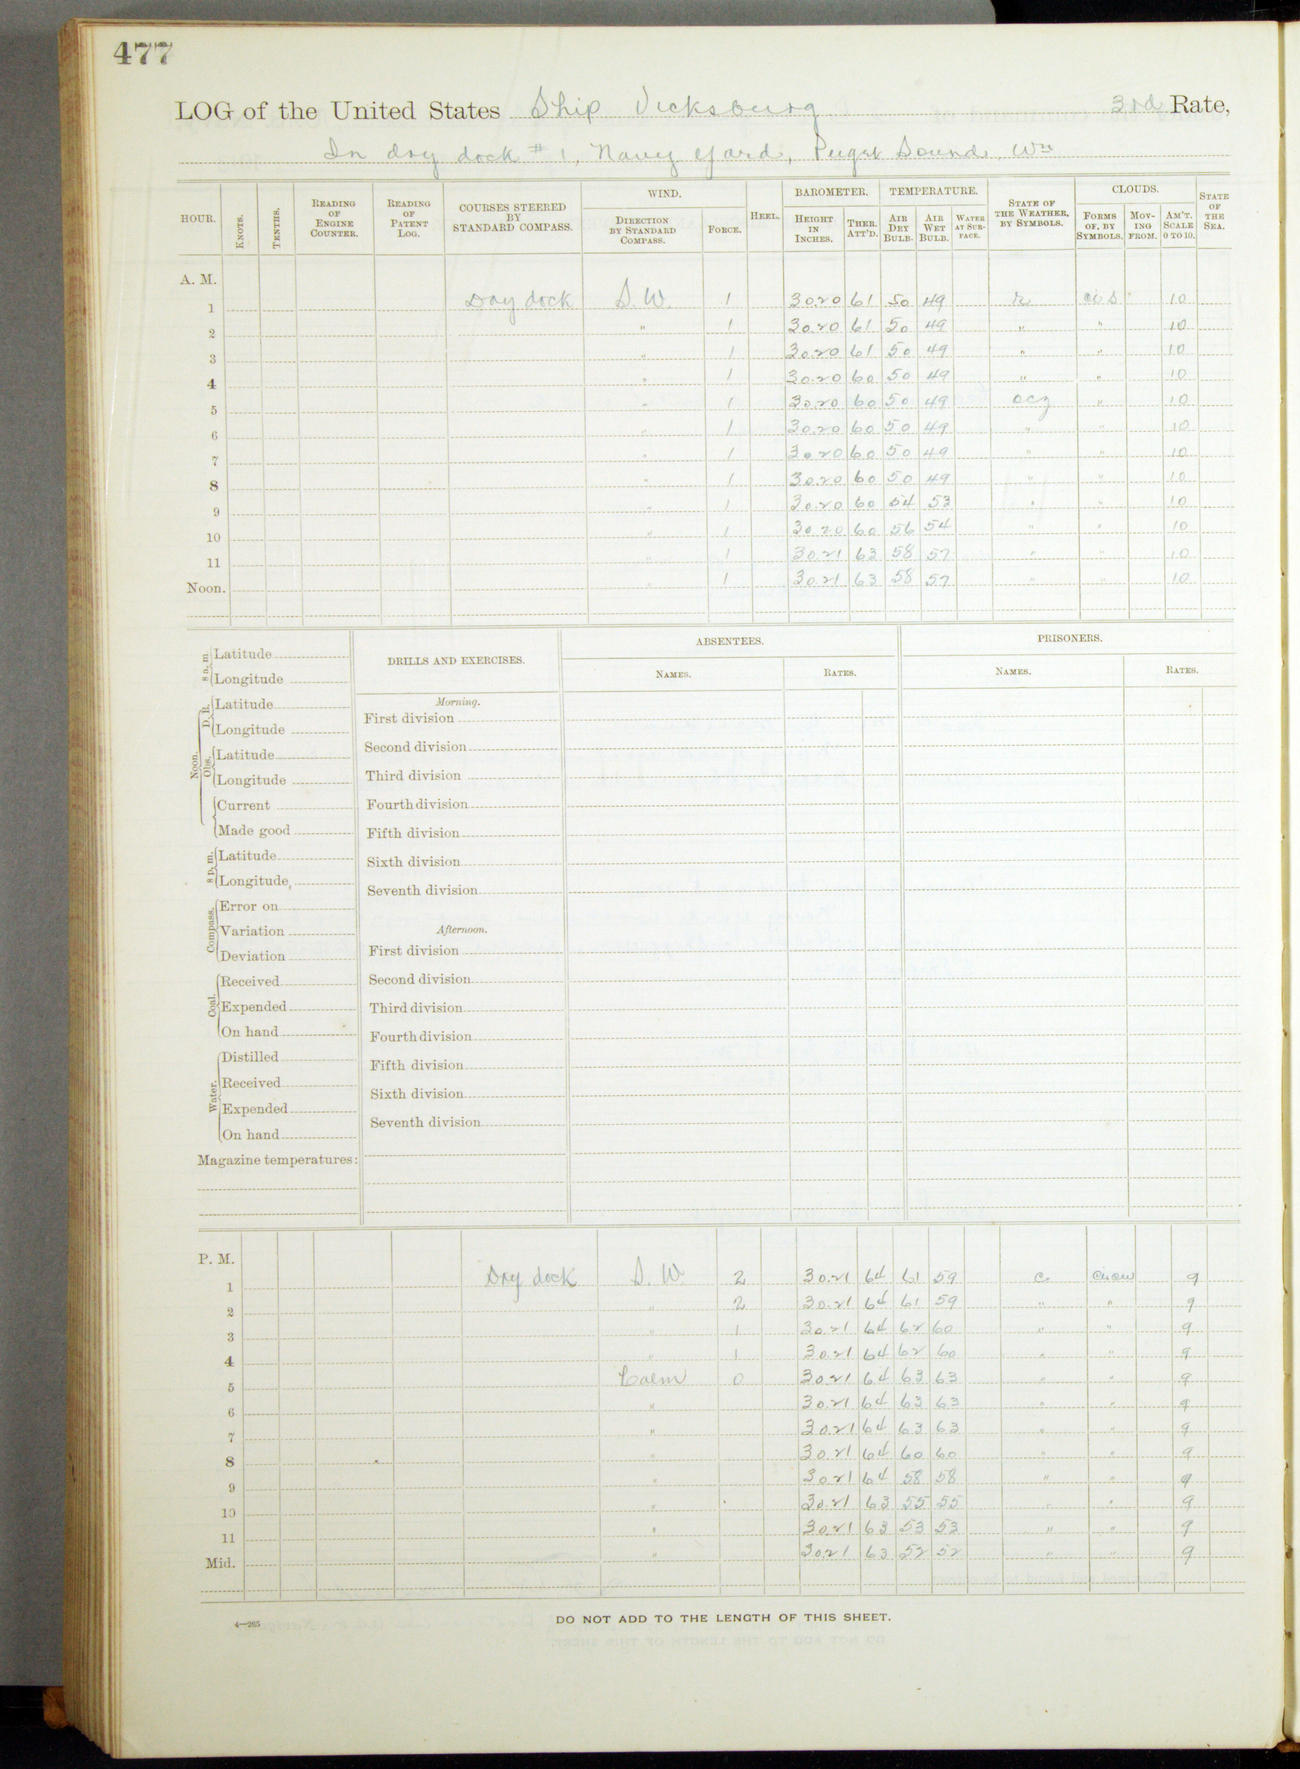 477
LOG of the United States Ship Vicksburg 3rd Rate,
In dry dock # 1, Navy Yard, Puget Sound, Wn
HOUR. KNOTS. TENTHS. READING OF ENGINE COUNTER. READING OF PATENT LOG. COURSES STEERED BY STANDARD COMPASS. WIND. DIRECTION BY STANDARD COMPASS. FORCE. HEEL. BAROMETER. HEIGHT IN INCHES. THER. ATT'D. TEMPERATURE. AIR DRY BULB. AIR WET BULB. WATER AT SURFACE. STATE OF THE WEATHER, BY SYMBOLS. CLOUDS. FORMS OF, BY SYMBOLS. MOVING FROM. AM'T. SCALE 0 TO 10. STATE OF THE SEA.
A. M.
1 Dry dock S.W. 1 30.20 61 50 49 r ci s 10
2 " 1 30.20 61 50 49 " " 10
3 " 1 30.20 61 50 49 " " 10
4 " 1 30.20 60 50 49 " " 10
5 " 1 30.20 60 50 49 ocz " 10
6 " 1 30.20 60 50 49 " " 10
7 " 1 30.20 60 50 49 " " 10
8 " 1 30.20 60 50 49 " " 10
9 " 1 30.20 60 54 53 " " 10
10 " 1 30.20 60 56 54 " " 10
11 " 1 30.21 63 58 57 " " 10
Noon. " 1 30.21 63 58 57 " " 10
8 a. m. Latitude
Longitude
Noon. D. R. Latitude
Longitude
Obs. Latitude
Longitude
Current
Made good
8 p. m. Latitude
Longitude
Compass. Error on
Variation
Deviation
Coal. Received
Expended
On hand
Water. Distilled
Received
Expended
On hand
Magazine temperatures:
DRILLS AND EXERCISES.
Morning.
First division
Second division
Third division
Fourth division
Fifth division
Sixth division
Seventh division
Afternoon.
First division
Second division
Third division
Fourth division
Fifth division
Sixth division
Seventh division
ABSENTEES.
NAMES. RATES.
PRISONERS.
NAMES. RATES.
P. M.
1 Dry dock S.W. 2 30.21 64 61 59 c. 9
2 " 2 30.21 64 61 59 " " 9
3 " 1 30.21 64 62 60 " " 9
4 " 1 30.21 64 62 60 " " 9
5 Calm 0 30.21 64 63 63 " " 9
6 " 30.21 64 63 63 " " 9
7 " 30.21 64 63 63 " " 9
8 " 30.21 64 60 60 " " 9
9 " 30.21 64 58 58 " " 9
10 " 30.21 63 55 55 " " 9
11 " 30.21 63 53 53 " " 9
Mid. " 30.21 63 52 52 " " 9
4—265
DO NOT ADD TO THE LENGTH OF THIS SHEET.